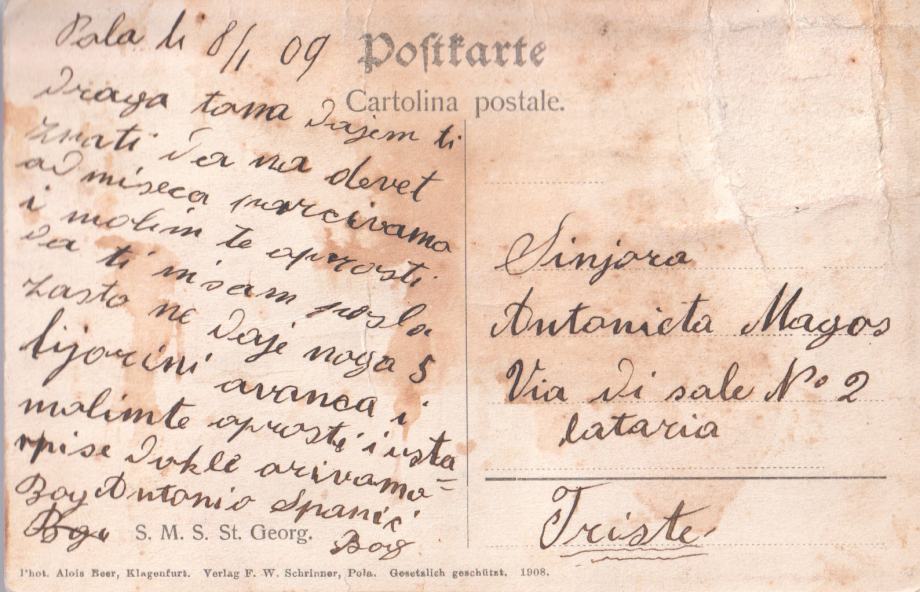 Pola li 8/1 09
Postkarte
Cartolina postale.
Draga tona dajem ti
znati da na devet
ad miseca parcivamo
i molim te oprosti
da ti nisam posla
zasto ne daje nogo 5
fijorini avanca i
molimte oprosti i usta
pise dokle arivamo=
Bog Antonio Spanić
Bog
S. M. S. St. Georg.
Sinjora
Antonieta Magos
Via di sale No 2
lataria
Triste
Phot. Alois Beer, Klagenfurt. Verlag F. W. Schrinner, Pola. Gesetzlich geschützt. 1908.